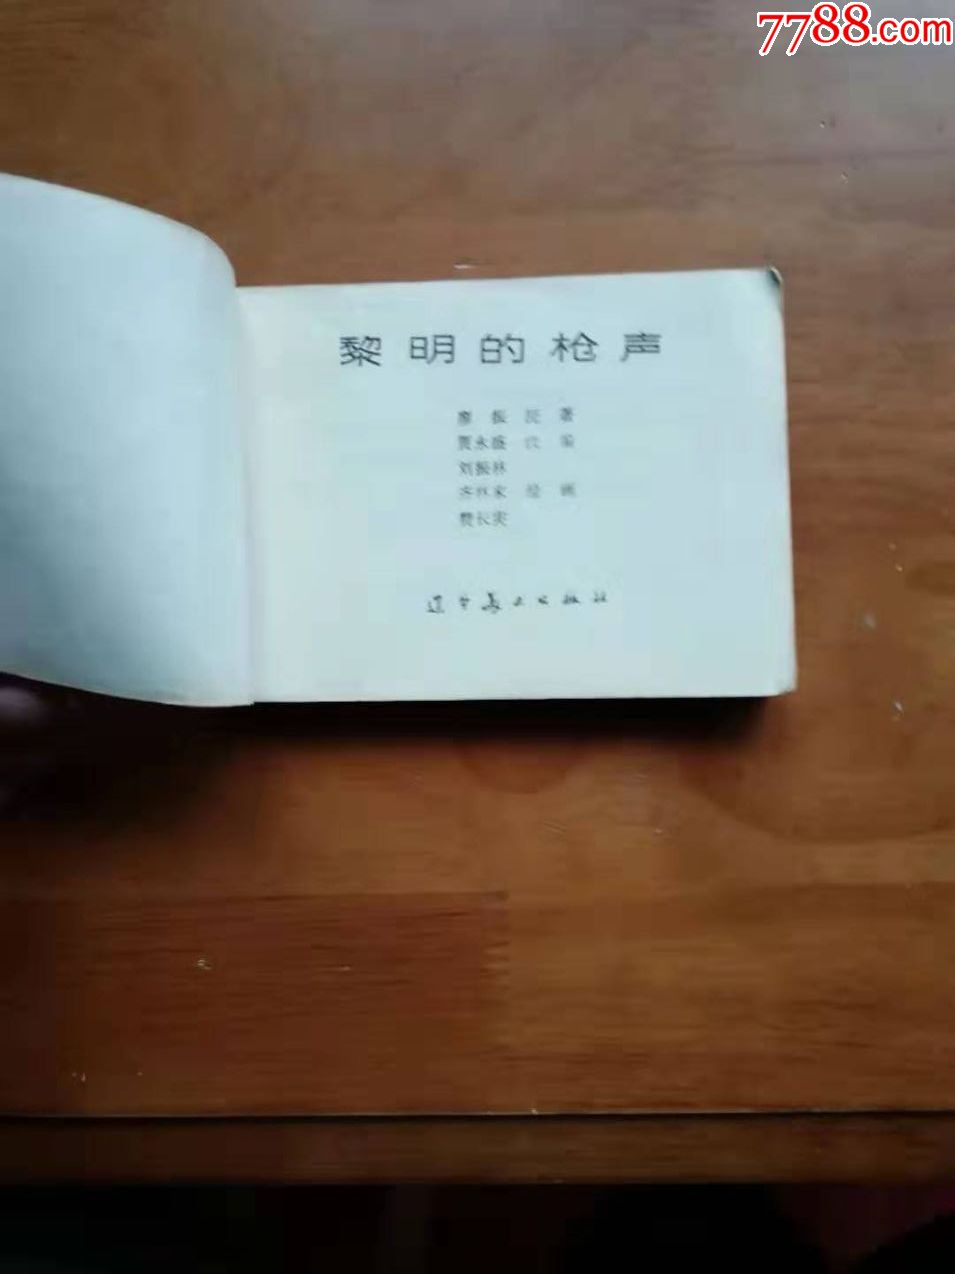 7788.com
黎明的枪声
廖振 著
贾永盛 改编
刘振林
齐林家 绘画
费长
辽宁美术出版社